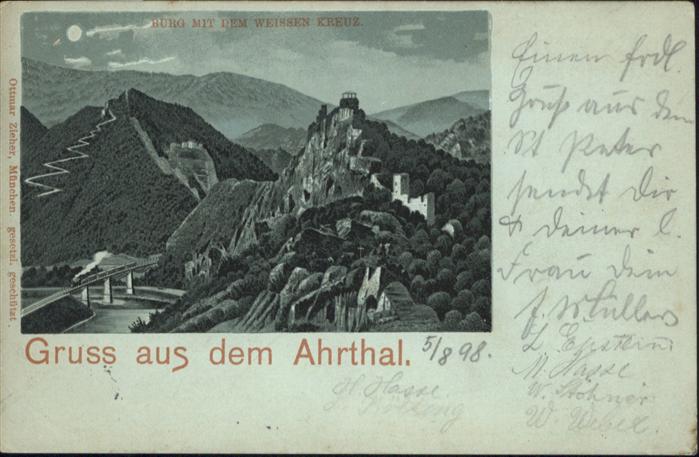 BURG MIT DEM WEISSEN KREUZ.
Ottmar Zieher, München. gesetzl. geschützt.
Gruss aus dem Ahrthal.
5/8 98.
Einen frdl.
Gruß aus dem
St Peter
sendet Dir
& deiner l.
Frau dein
J. Müller
L. Epstein
M. Hasse
W. Weber.
H. Hasse